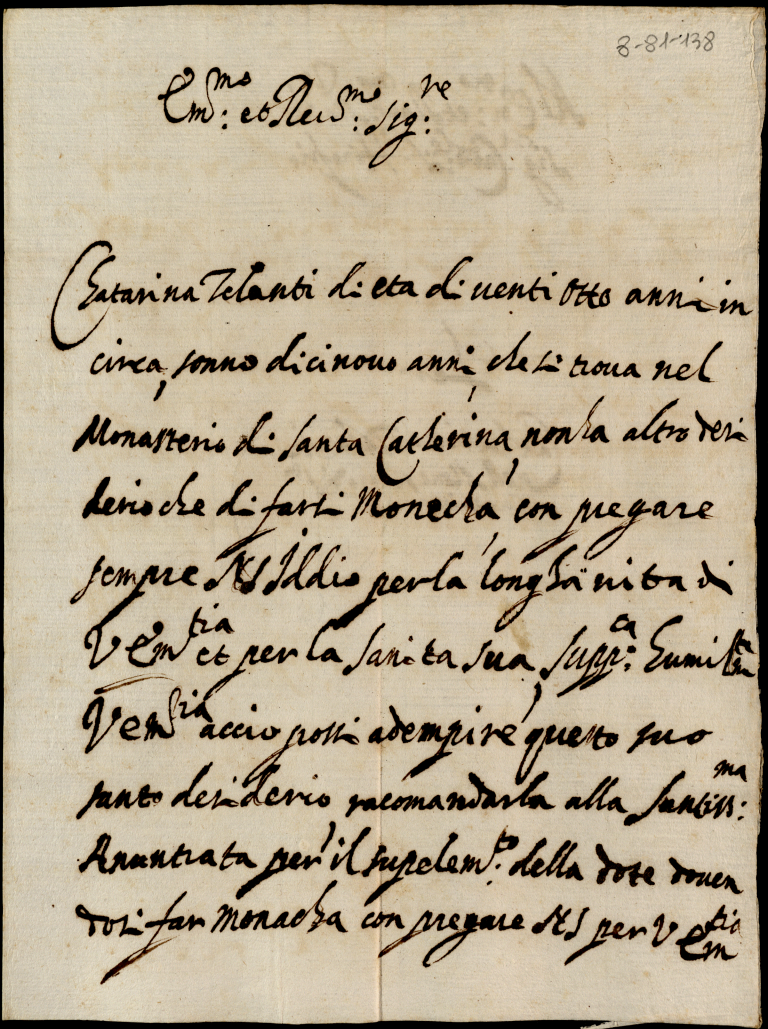 8-81-138
Em.mo et Reu.mo Sig.re
Chatarina Zelanti di eta di uenti otto anni in
circa, sonno dicinouo anni, che si troua nel
Monasterio di Santa Catherina, non ha altro desi
derio che di farsi Monecha, con pregare
sempre NS Iddio per la longha uita di
V Em.tia et per la sanita sua, supp.ca humil.ta
V em.tia accio possi adempire questo suo
santo desiderio, racomandarla alla Santiss.ma
Anuntiata per il supelem.to della dote douen
dosi far monacha con pregare NS per V Em.tia